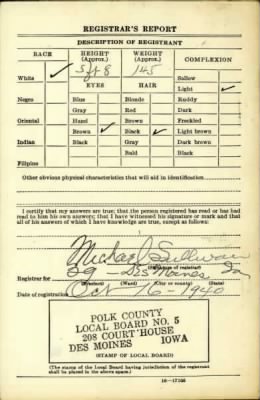 REGISTRAR'S REPORT
DESCRIPTION OF REGISTRANT
RACE HEIGHT (Approx.) WEIGHT (Approx.) COMPLEXION
White ✓ 5 ft 8 145 Sallow
EYES HAIR Light ✓
Negro Blue Blonde Ruddy
Gray Red Dark
Oriental Hazel Brown Freckled
Brown ✓ Black ✓ Light brown
Indian Black Gray Dark brown
Bald Black
Filipino
Other obvious physical characteristics that will aid in identification
I certify that my answers are true; that the person registered has read or has had read to him his own answers; that I have witnessed his signature or mark and that all of his answers of which I have knowledge are true, except as follows:
Michael J Sullivan
(Signature of registrar)
Registrar for 29 - Des Moines Ia
(Precinct) (Ward) (City or county) (State)
Date of registration Oct 16-1940
POLK COUNTY
LOCAL BOARD NO. 5
208 COURT HOUSE
DES MOINES IOWA
(STAMP OF LOCAL BOARD)
(The stamp of the Local Board having jurisdiction of the registrant shall be placed in the above space.)